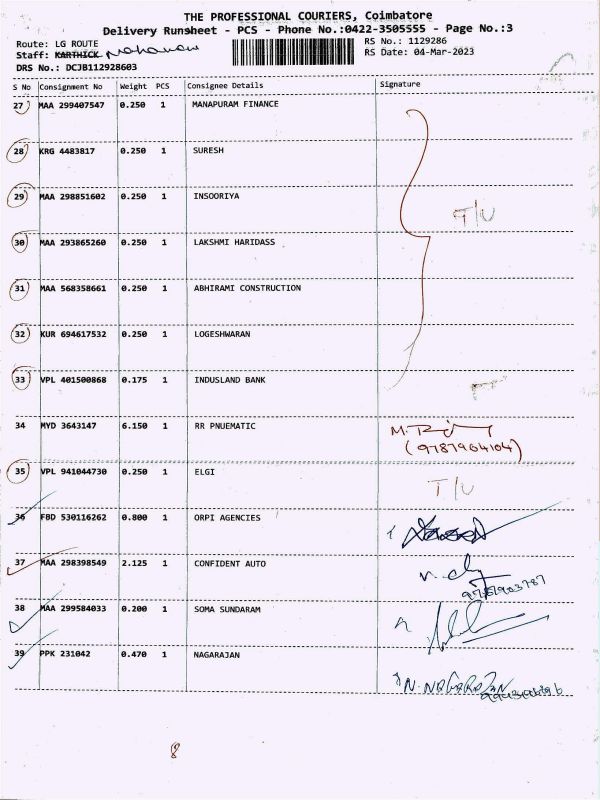 THE PROFESSIONAL COURIERS, Coimbatore
Delivery Runsheet - PCS - Phone No.:0422-3505555 - Page No.:3
Route: LG ROUTE
RS No.: 1129286
Staff: KARTHICK
RS Date: 04-Mar-2023
DRS No.: DCJB112928603
S No Consignment No Weight PCS Consignee Details Signature
27 MAA 299407547 0.250 1 MANAPURAM FINANCE
28 KRG 4483817 0.250 1 SURESH
29 MAA 298851602 0.250 1 INSOORIYA
T/U
30 MAA 293865260 0.250 1 LAKSHMI HARIDASS
31 MAA 568358661 0.250 1 ABHIRAMI CONSTRUCTION
32 KUR 694617532 0.250 1 LOGESHWARAN
33 VPL 401500868 0.175 1 INDUSLAND BANK
34 MYD 3643147 6.150 1 RR PNUEMATIC
(9787964104)
35 VPL 941044730 0.250 1 ELGI T/U
36 FBD 530116262 0.800 1 ORPI AGENCIES
37 MAA 298398549 2.125 1 CONFIDENT AUTO
38 MAA 299584033 0.200 1 SOMA SUNDARAM
39 PPK 231042 0.470 1 NAGARAJAN
N. NAGARAJAN
8